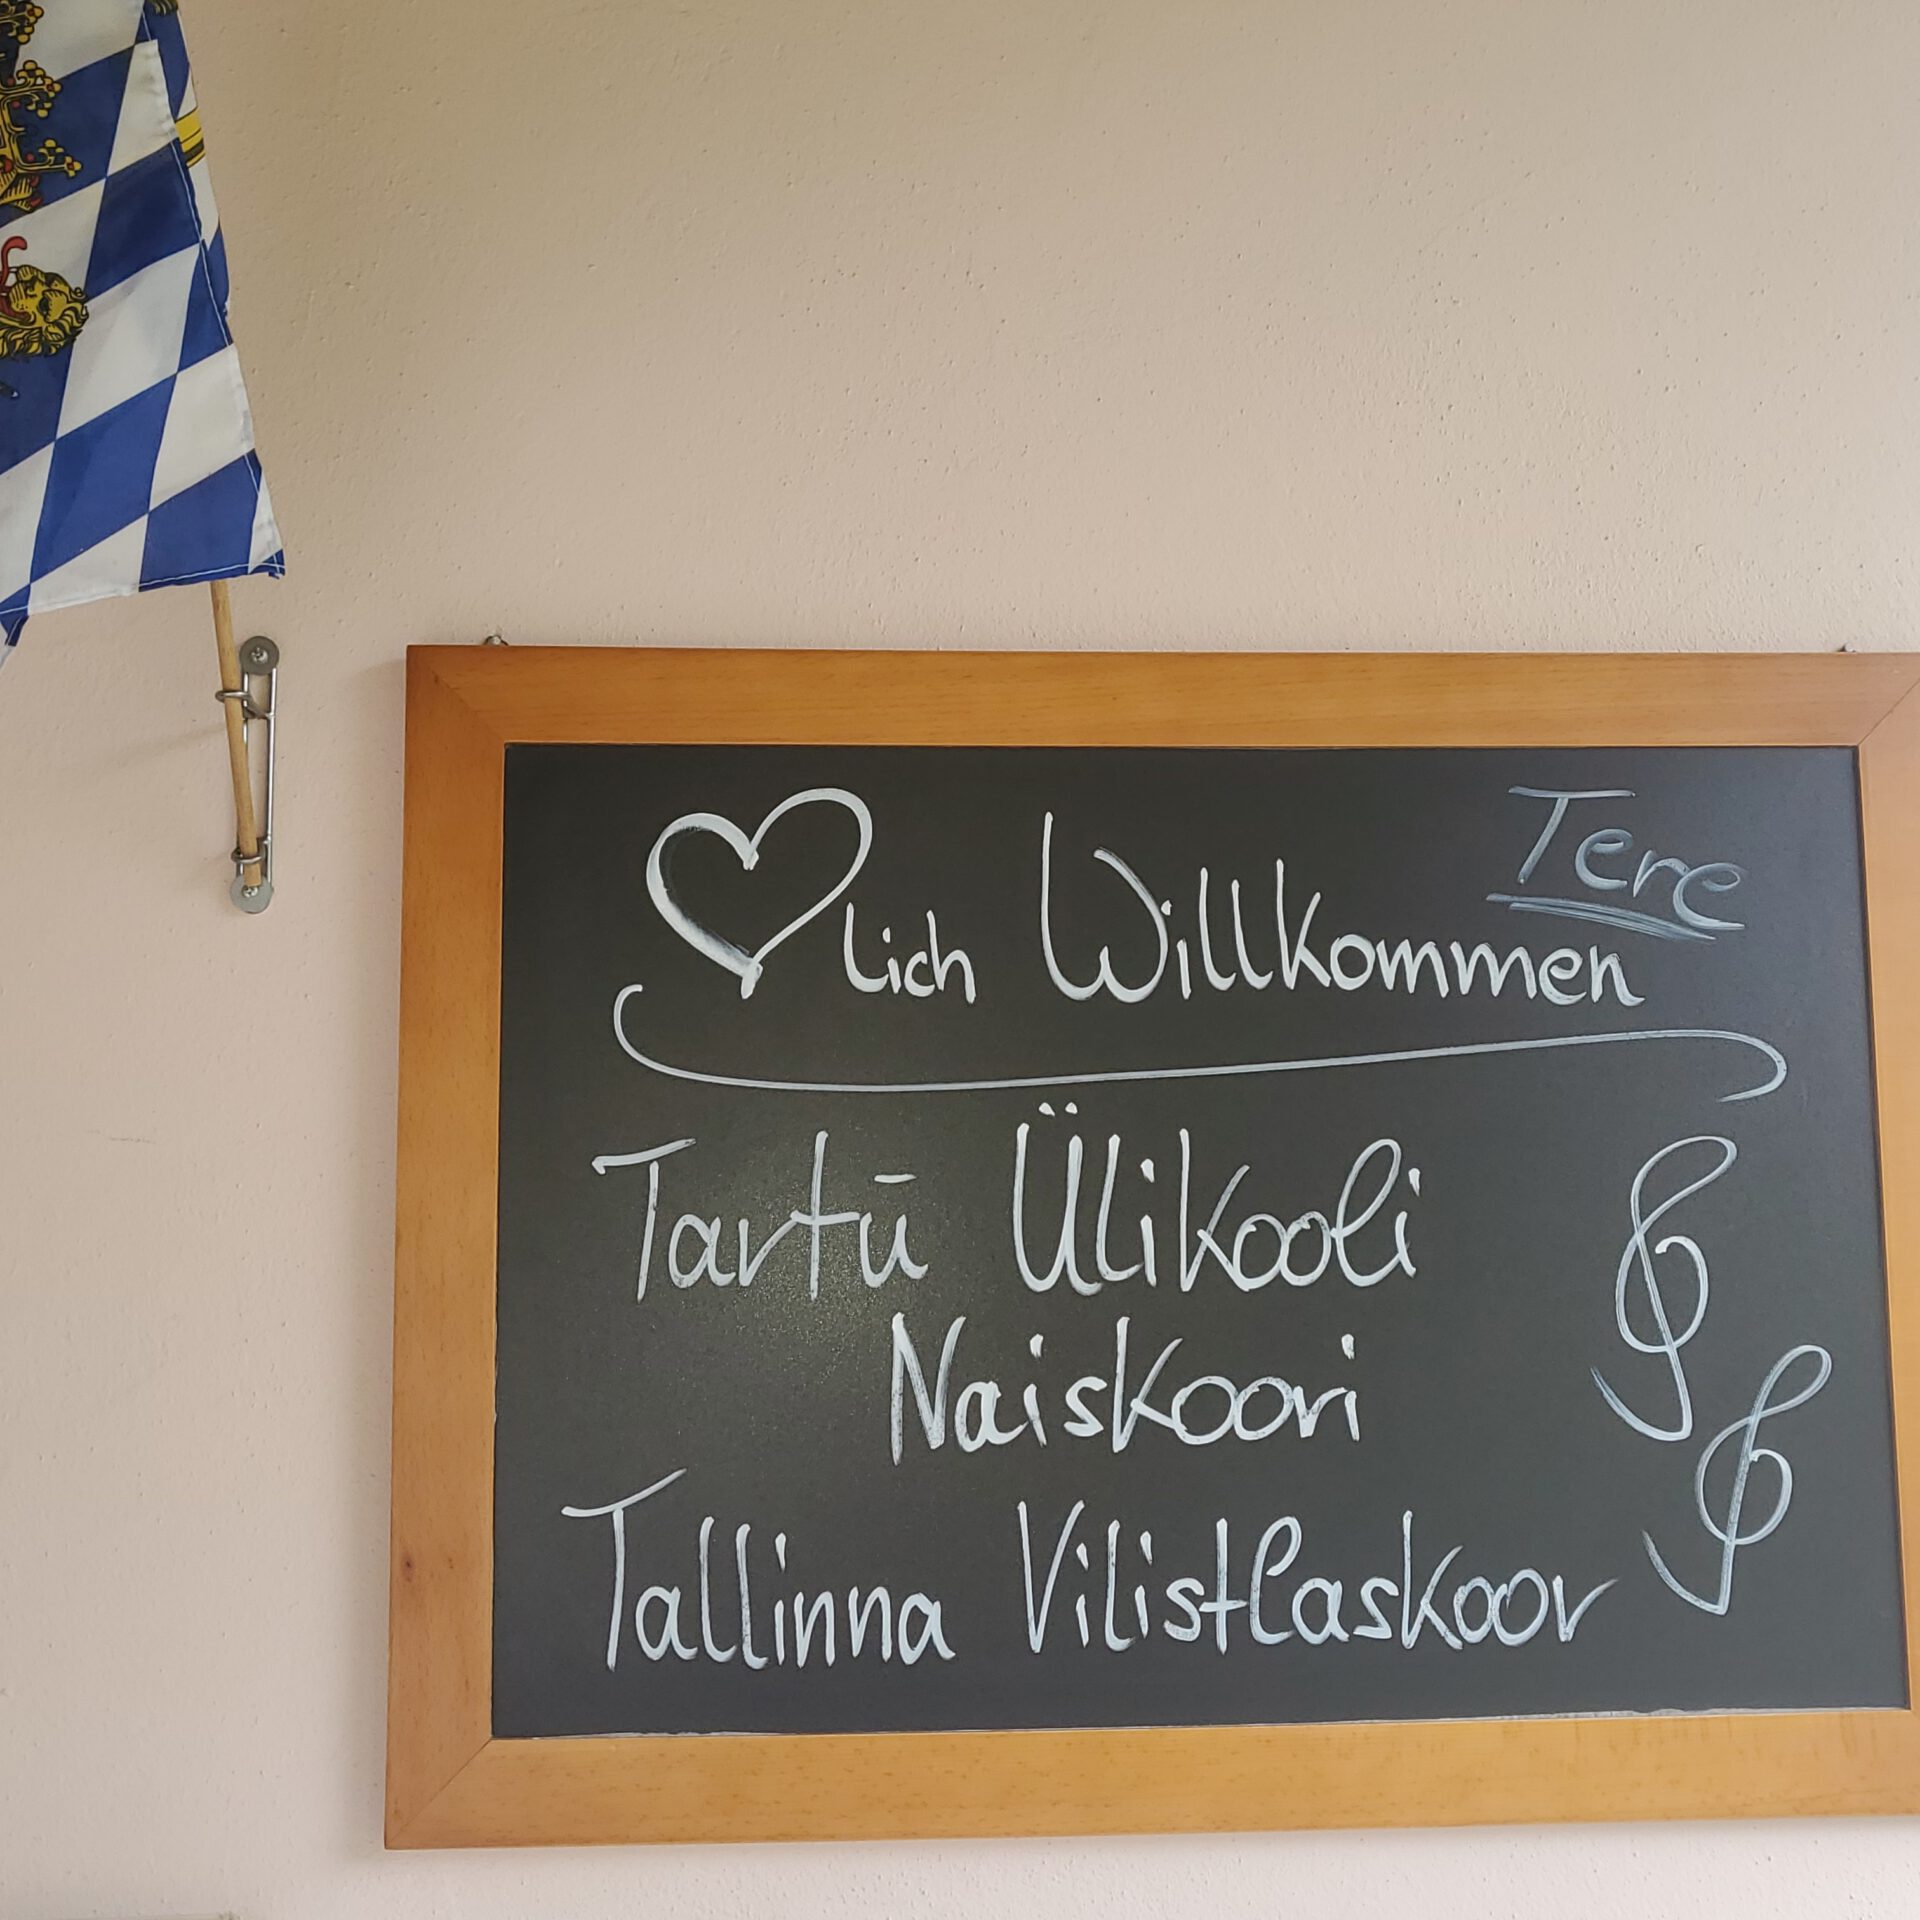 Tere
♡lich Willkommen
Tartū Ülikooli
Naiskoori
Tallinna Vilistlaskoor